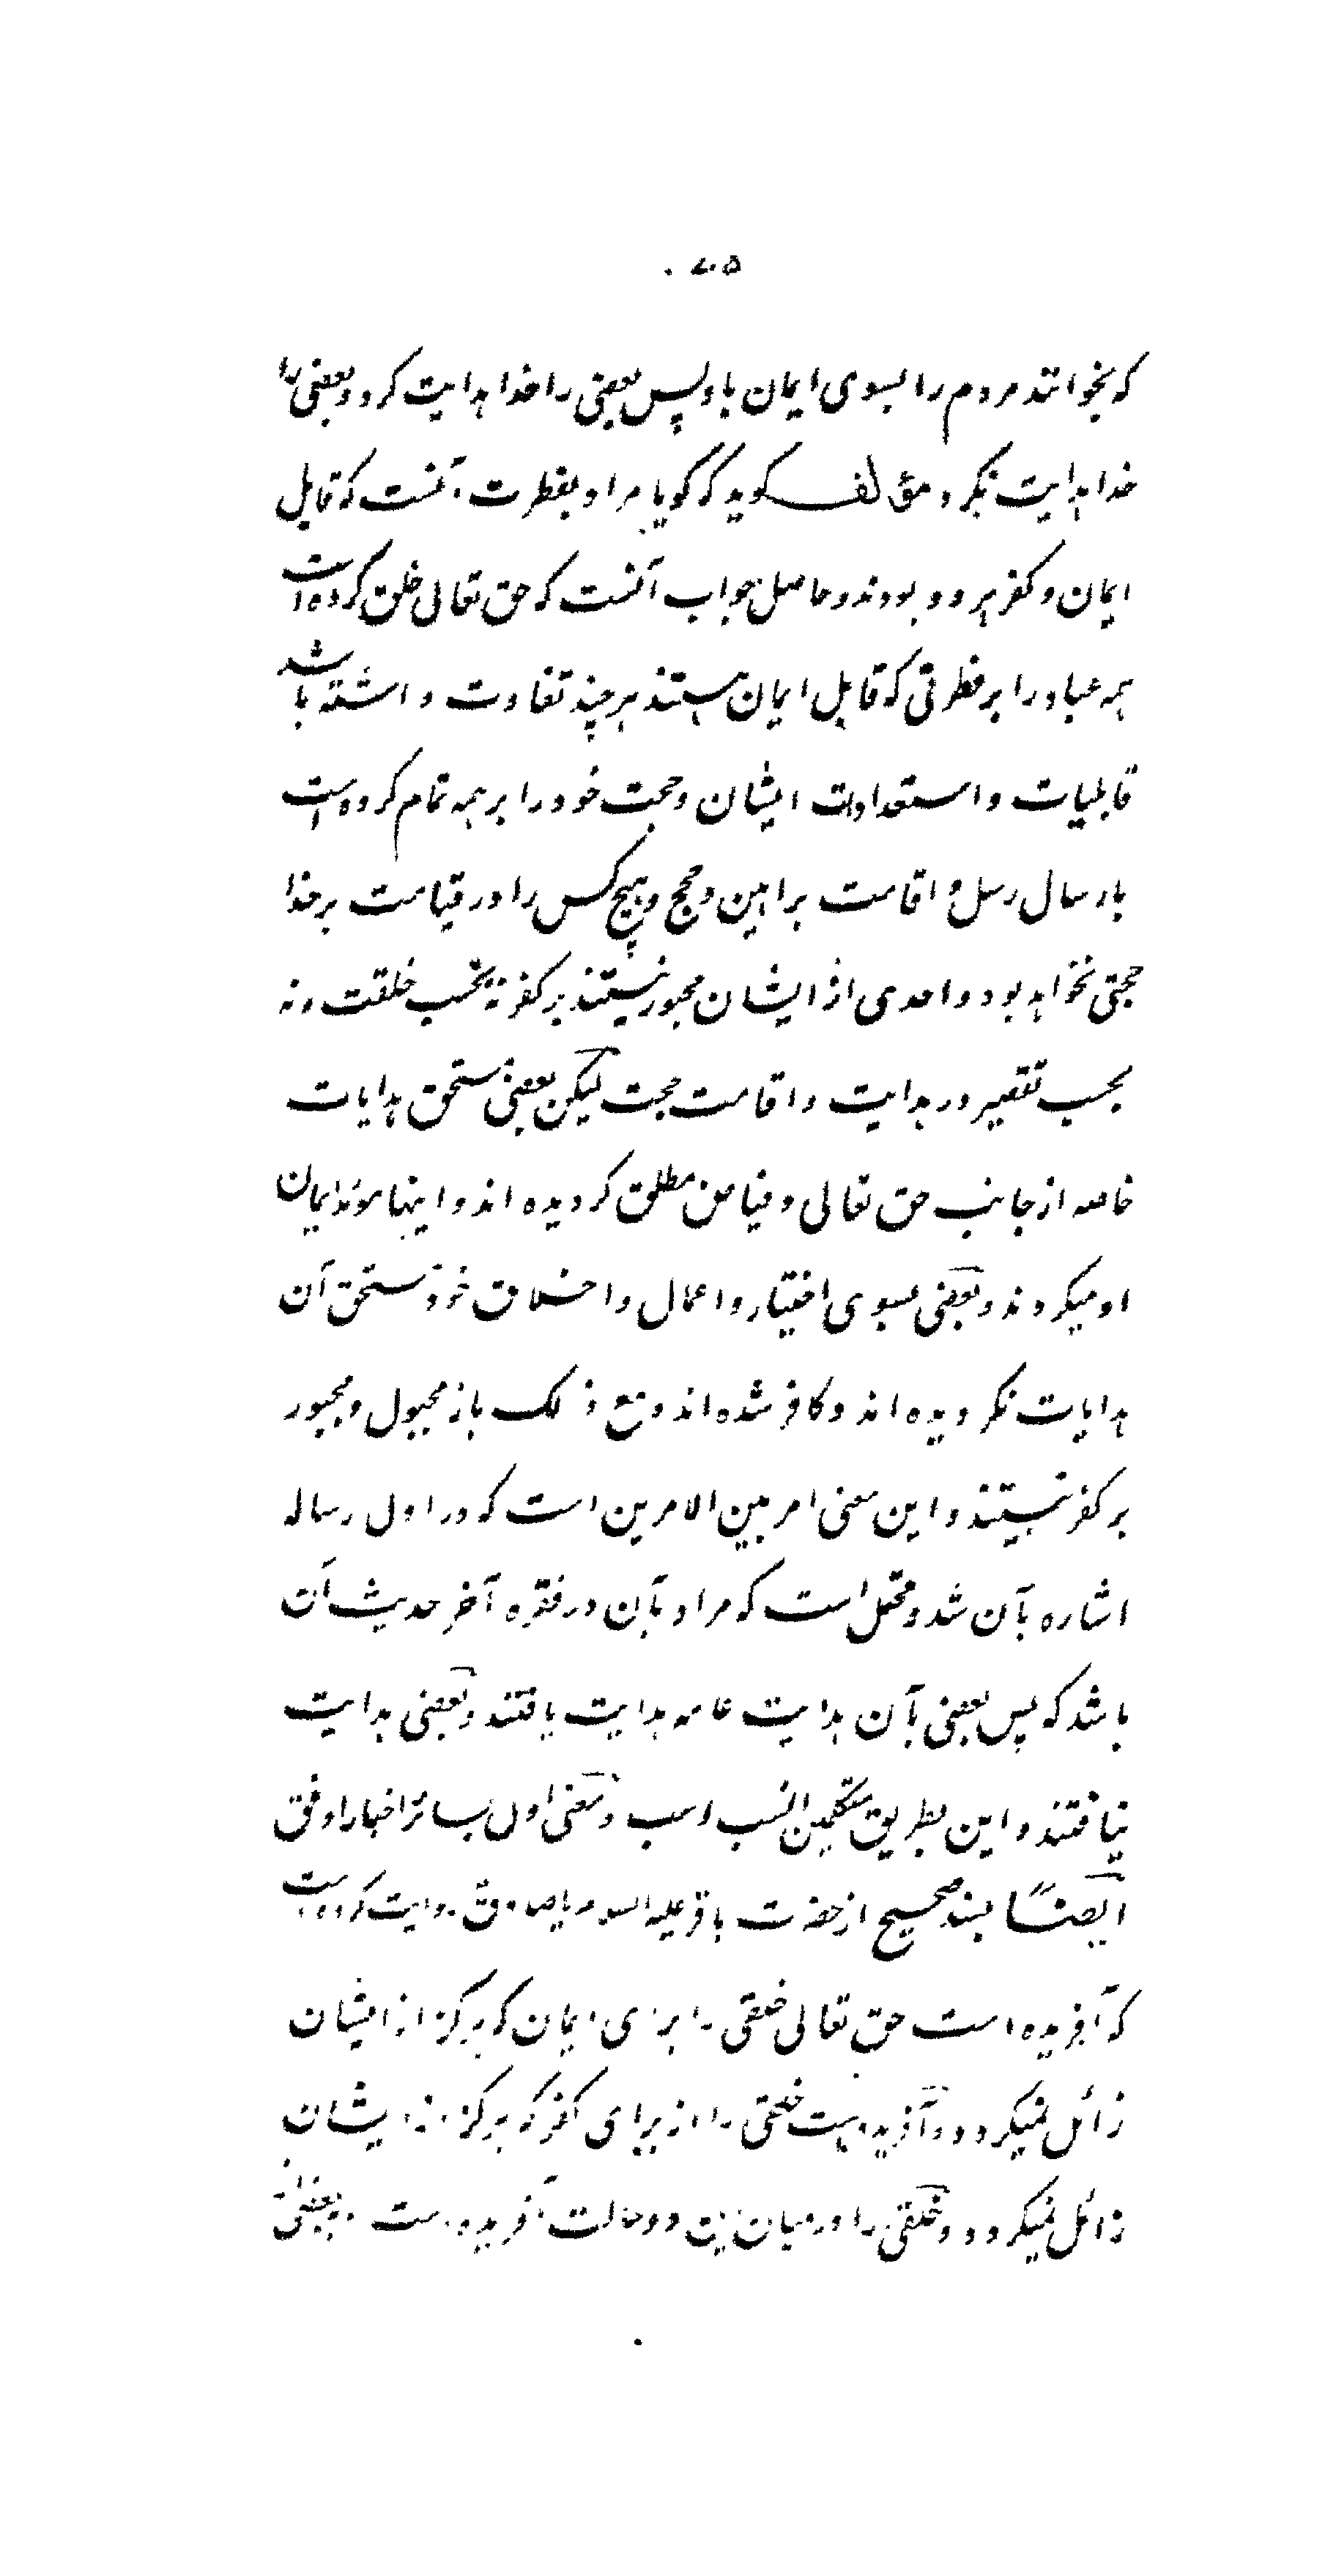 که بخوانند مردم را بسوی ایمان باو پس بعضی را خدا هدایت کرد و بعضی را
خدا هدایت نکرد مؤلف کوید که کویا مراد بفطرت آنست که قابل
ایمان و کفر هر دو بودند و حاصل جواب آنست که حق تعالی خلق کرده است
همه عباد را بر فطرتی که قابل ایمان هستند هر چند تفاوت داشته باشد
قابلیات و استعدادات ایشان و حجت خود را بر همه تمام کرده است
بارسال رسل و اقامت براهین و حجج و هیچ کس را در قیامت بر خدا
حجتی نخواهد بود و احدی از ایشان مجبور نیستند بر کفر نه بحسب خلقت و نه
بحسب تقصیر در هدایت و اقامت حجت لیکن بعضی مستحق هدایات
خاصه از جانب حق تعالی و فیاض مطلق کردیده اند و اینها مؤید ایمان
او میکردند و بعضی بسوی اختیار و اعمال و اخلاق خود مستحق آن
هدایات نکردیده اند و کافر شده اند و مع ذلک باز مجبول و مجبور
بر کفر نیستند و این معنی امر بین الامرین است که در اول رساله
اشاره بآن شد و محتمل است که مراد بآن در فقره آخر حدیث آن
باشد که پس بعضی بآن هدایت عامه هدایت یافتند و بعضی هدایت
نیافتند و این بطریق متکلمین انسب است و معنی اول بسائر اخبار اوفق
ایضا بسند صحیح از حضرت باقر علیه السلام یا صادق روایت کرده است
که آفریده است حق تعالی خلقی را برای ایمان که هرکز از ایشان
زائل نمیکردد و آفریده است خلقی را از برای کفر که هرکز از ایشان
زائل نمیکردد و خلقی را در میان این دو حالت آفریده است و بعضی